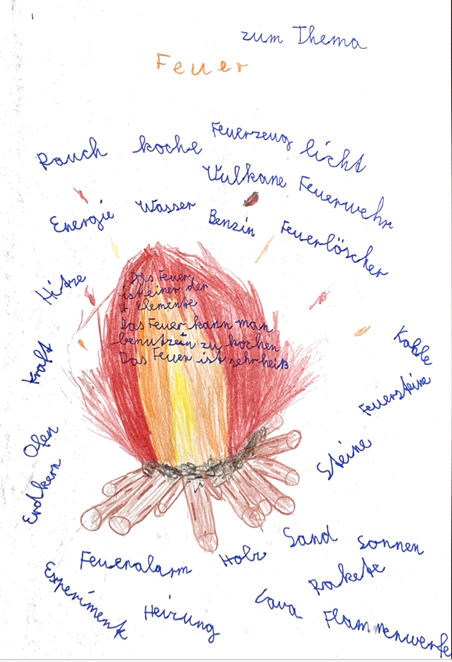 zum Thema
Feuer
Rauch
koche
Feuerzeug
licht
Vulkane
Feuerwehr
Energie
Wasser
Benzin
Feuerlöscher
Hitze
Das Feuer
ist einer der
4 Elemente
Das Feuer kann man
benutzein zu kochen
Das Feuer ist sehr heiß
Kraft
Kohle
Feuersteine
Ofen
Steine
Erdkern
Feueralarm
Holz
Sand
Sonnen
Rakete
Experiment
Heizung
Lava
Flammenwerfer